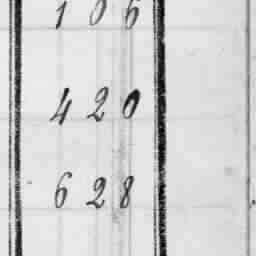 106
420
628